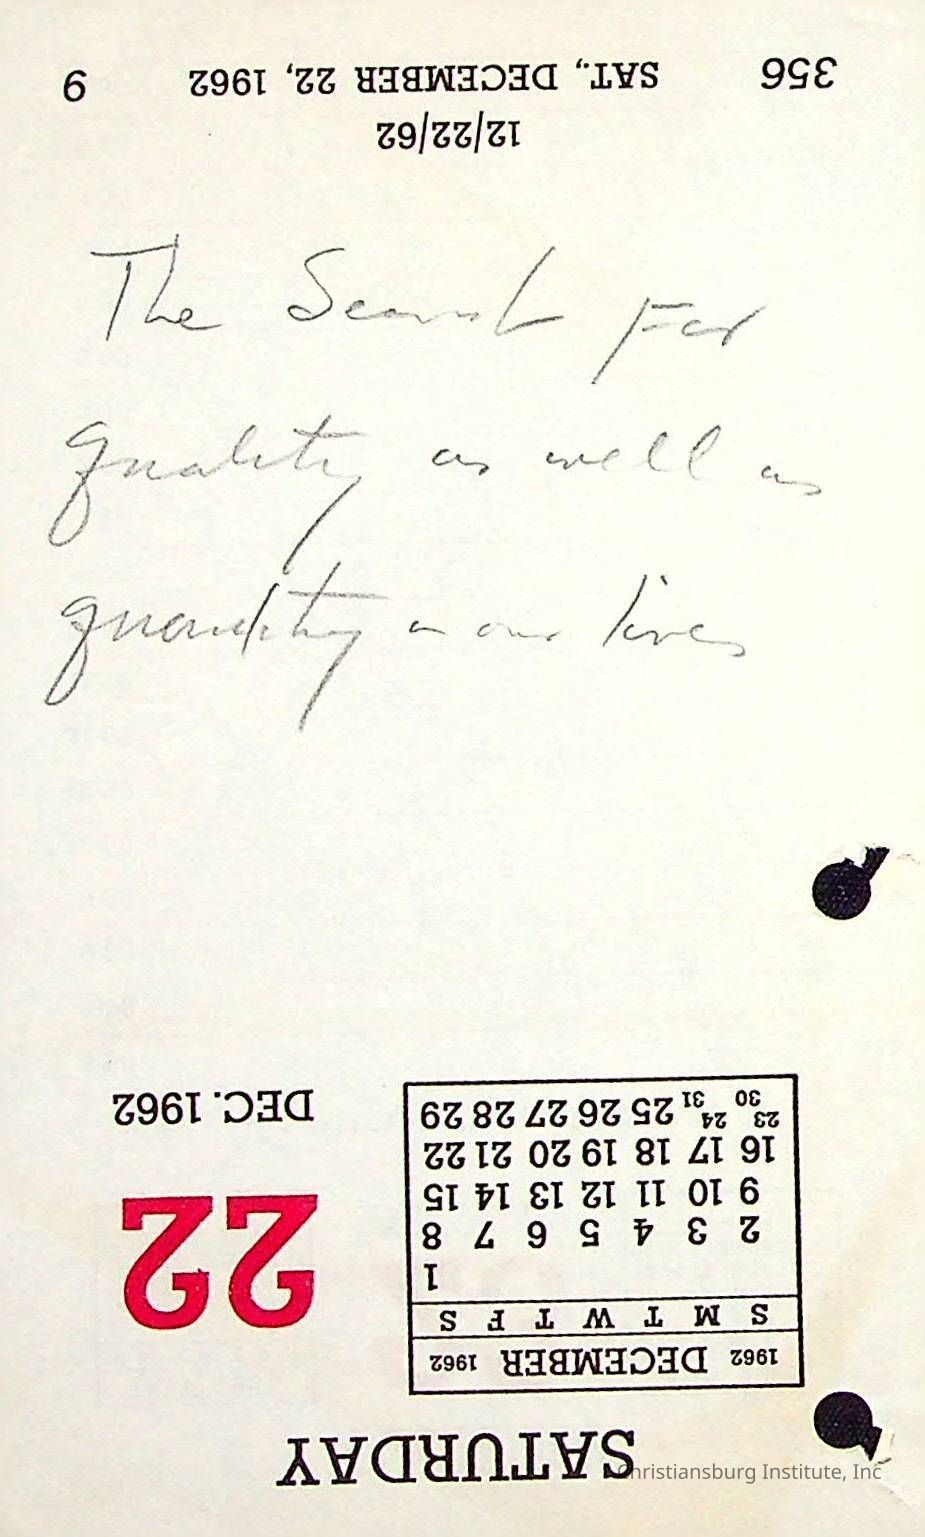 The Search For
quality as well as
quantity in our lives
SATURDAY
22
DEC. 1962
1962 DECEMBER 1962
S M T W T F S
1
2 3 4 5 6 7 8
9 10 11 12 13 14 15
16 17 18 19 20 21 22
23 30 24 31 25 26 27 28 29
356 SAT., DECEMBER 22, 1962 9
12/22/62
Christiansburg Institute, Inc